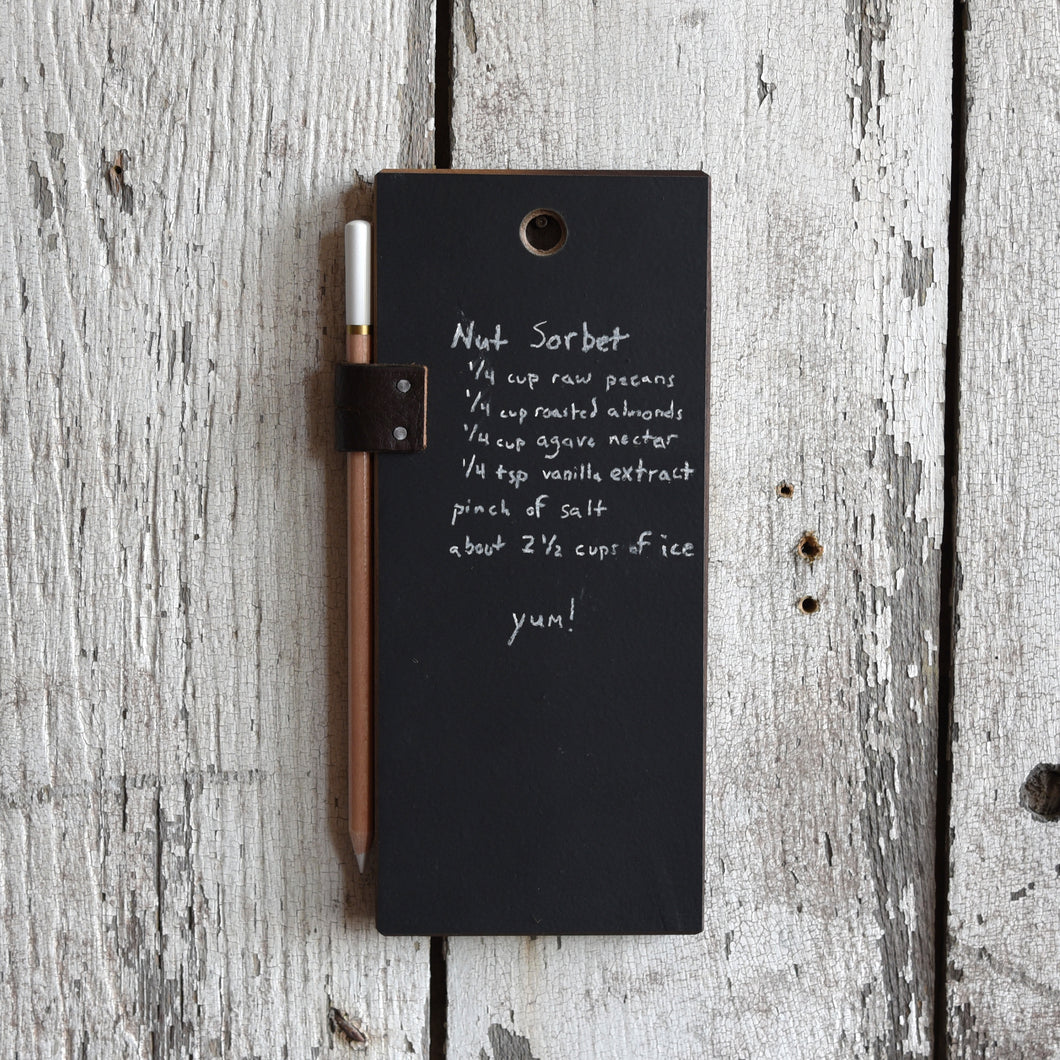 Nut Sorbet
1/4 cup raw pecans
1/4 cup roasted almonds
1/4 cup agave nectar
1/4 tsp vanilla extract
pinch of salt
about 2 1/2 cups of ice
yum!